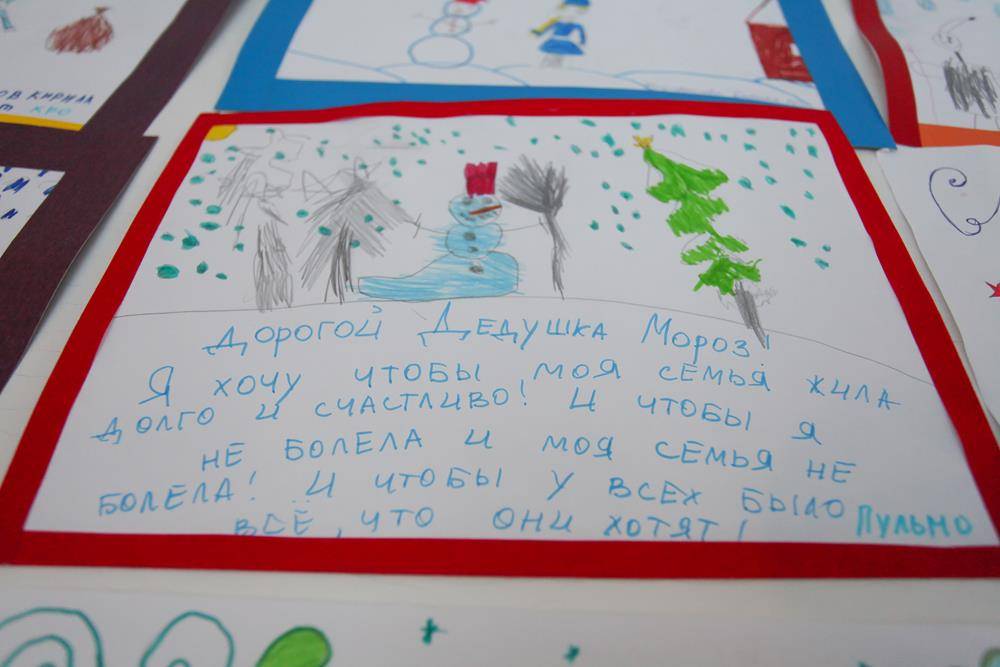 КИРИЛЛ
КРО
Дорогой Дедушка Мороз!
Я хочу чтобы моя семья жила
долго и счастливо! И чтобы я
не болела и моя семья не
болела! И чтобы у всех было
всё, что они хотят!
Пульмо